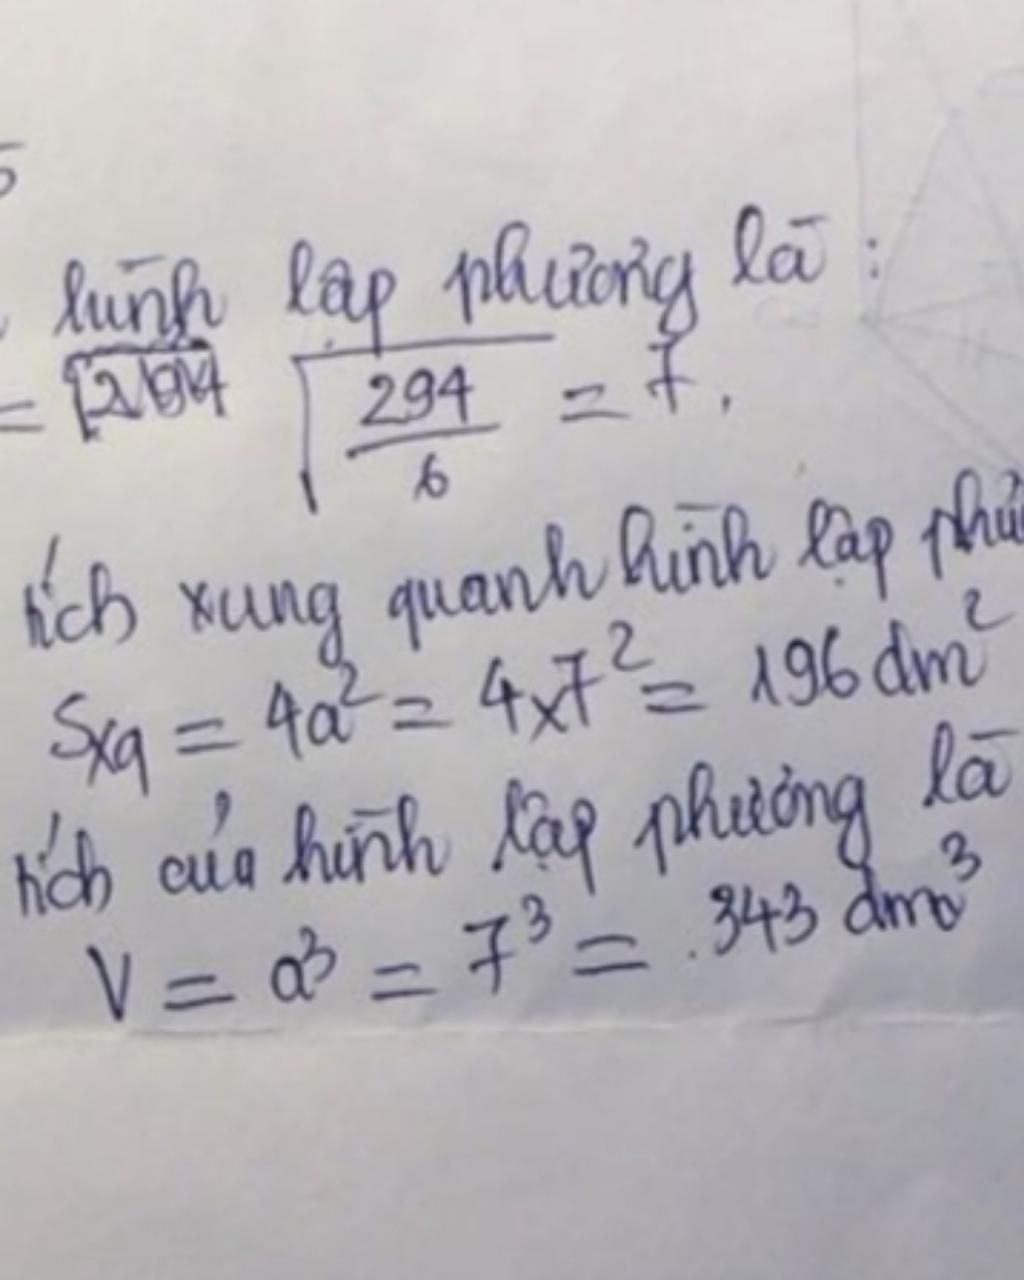 hình lập phương là:
= √294/6 = 7.
tích xung quanh hình lập
Sxq = 4a² = 4x7² = 196 dm²
tích của hình lập phương là
V = a³ = 7³ = 343 dm³